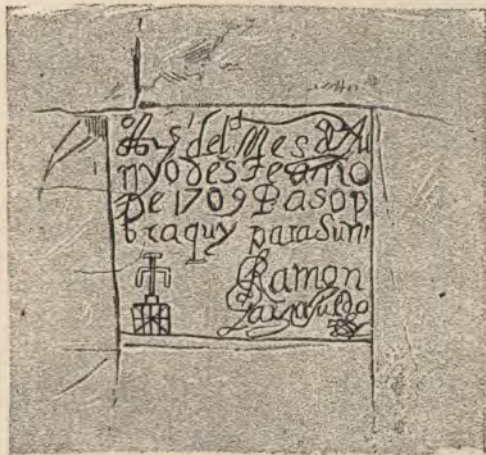 A 5 del Mes de Ju
nyo deste año
De 1709 Paso p
or aquy para Suñi
Ramon
Garcia Jurado